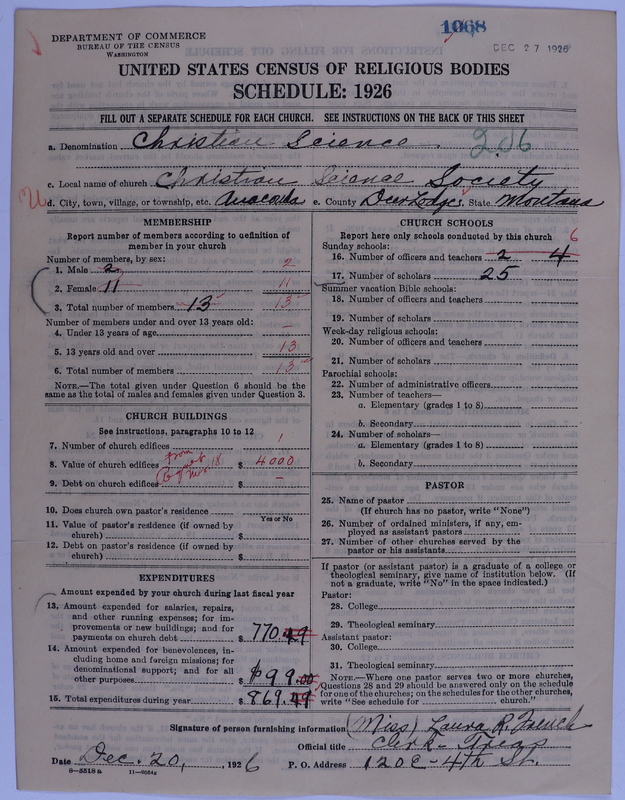 1068
DEC 27 1926
DEPARTMENT OF COMMERCE
BUREAU OF THE CENSUS
WASHINGTON
UNITED STATES CENSUS OF RELIGIOUS BODIES
SCHEDULE: 1926
FILL OUT A SEPARATE SCHEDULE FOR EACH CHURCH. SEE INSTRUCTIONS ON THE BACK OF THIS SHEET
a. Denomination Christian Science. 206
c. Local name of church Christian Science Society
d. City, town, village, or township, etc. Anaconda e. County Deer Lodge, State Montana
MEMBERSHIP
Report number of members according to definition of
member in your church
Number of members, by sex:
1. Male 2 2
2. Female 11 11
3. Total number of members 13 13
Number of members under and over 13 years old:
4. Under 13 years of age –
5. 13 years old and over 13
6. Total number of members 13
NOTE.—The total given under Question 6 should be the
same as the total of males and females given under Question 3.
CHURCH BUILDINGS
See instructions, paragraphs 10 to 12
7. Number of church edifices 1
8. Value of church edifices from $ 4000
9. Debt on church edifices $ –
10. Does church own pastor's residence
Yes or No
11. Value of pastor's residence (if owned by
church) $
12. Debt on pastor's residence (if owned by
church) $
EXPENDITURES
Amount expended by your church during last fiscal year
13. Amount expended for salaries, repairs,
and other running expenses; for im-
provements or new buildings; and for
payments on church debt $ 770.49
14. Amount expended for benevolences, in-
cluding home and foreign missions; for
denominational support; and for all
other purposes $ 99.00
15. Total expenditures during year $ 869.49
CHURCH SCHOOLS
Report here only schools conducted by this church
Sunday schools: 6
16. Number of officers and teachers 2 4
17. Number of scholars 25
Summer vacation Bible schools:
18. Number of officers and teachers
19. Number of scholars
Week-day religious schools:
20. Number of officers and teachers
21. Number of scholars
Parochial schools:
22. Number of administrative officers
23. Number of teachers—
a. Elementary (grades 1 to 8)
b. Secondary
24. Number of scholars—
a. Elementary (grades 1 to 8)
b. Secondary
PASTOR
25. Name of pastor
(If church has no pastor, write "None")
26. Number of ordained ministers, if any, em-
ployed as assistant pastors
27. Number of other churches served by the
pastor or his assistants
If pastor (or assistant pastor) is a graduate of a college or
theological seminary, give name of institution below. (If
not a graduate, write "No" in the space indicated.)
Pastor:
28. College
29. Theological seminary
Assistant pastor:
30. College
31. Theological seminary
NOTE.—Where one pastor serves two or more churches,
Questions 28 and 29 should be answered only on the schedule
for one of the churches; on the schedules for the other churches,
write "See schedule for church."
Signature of person furnishing information (Miss) Laura R. French
Official title Clerk - Treas
Date Dec. 20, 1926 P. O. Address 120 E - 4th St.
8—5518a 11—9054z